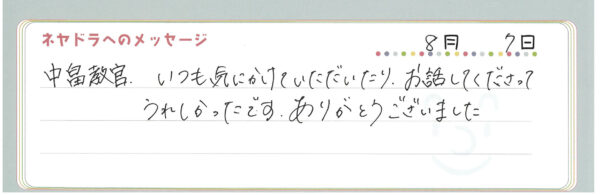 ネヤドラへのメッセージ
8月 7日
中畠教官. いつも気にかけていただいたり、お話してくださって
うれしかったです. ありがとうございました